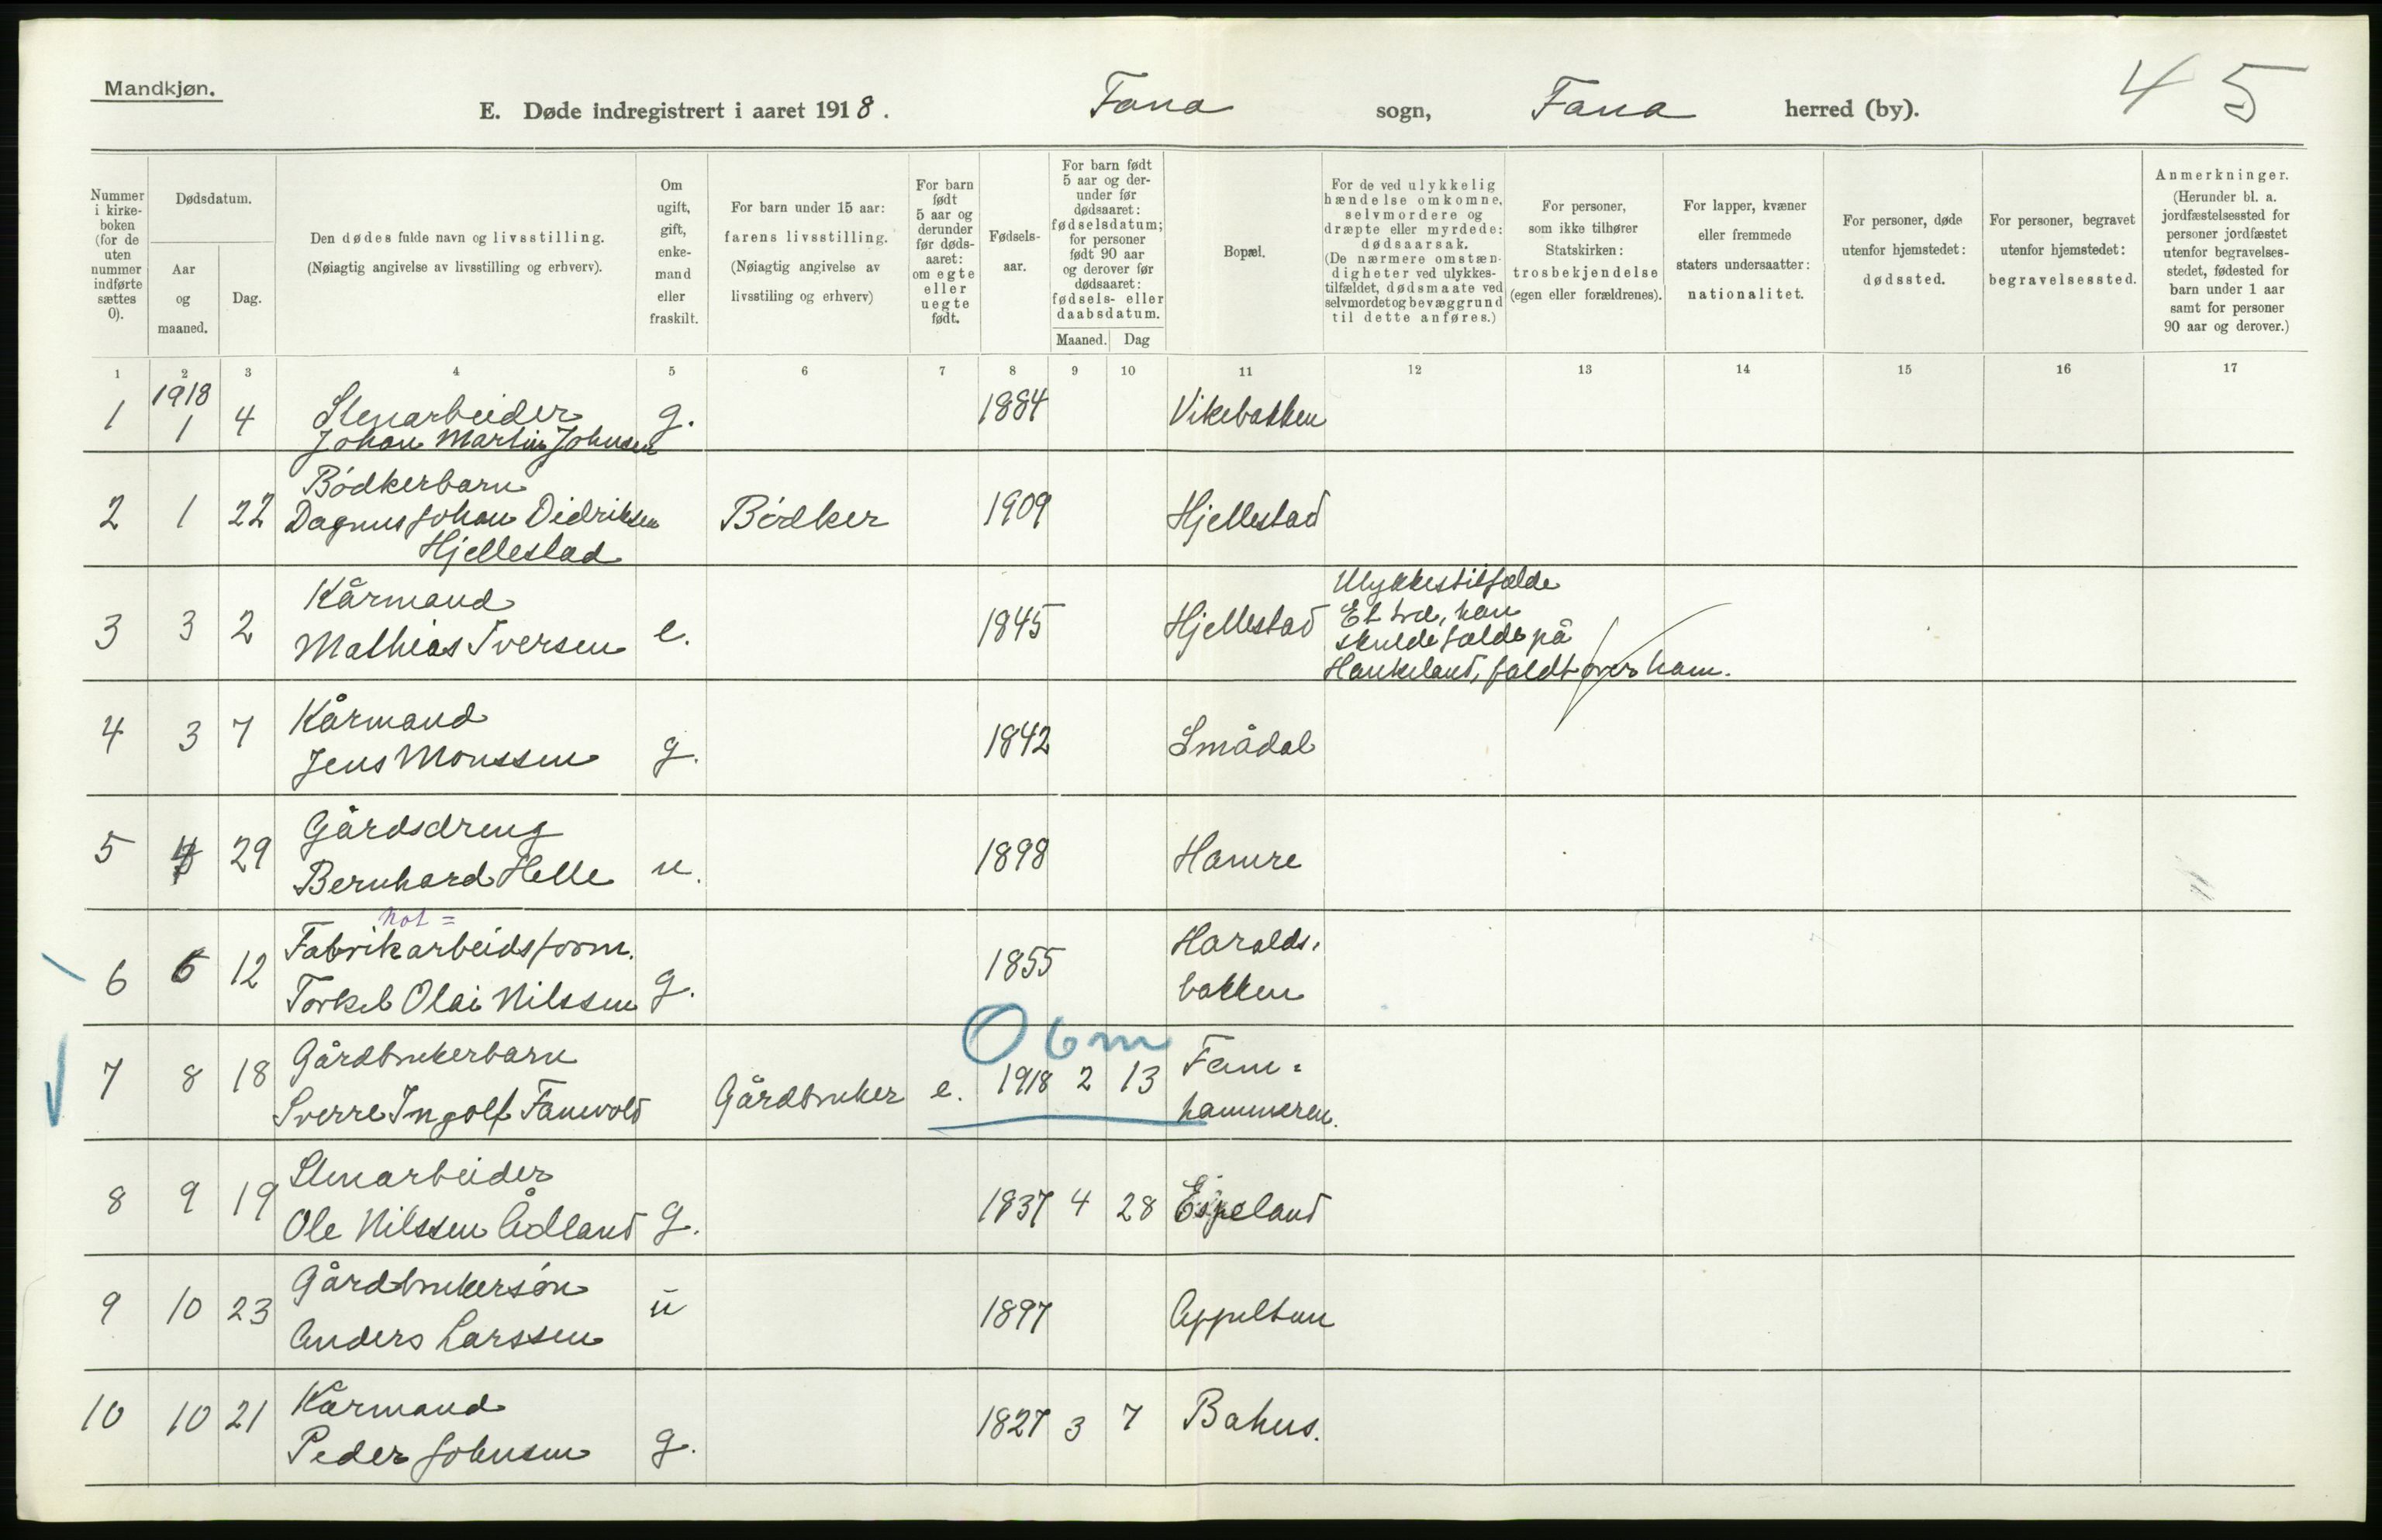 Mandkjøn.
E. Døde indregistrert i aaret 1918. Fana sogn, Fana herred (by).
4 5
Nummer i kirke- boken (for de uten nummer indførte sættes 0).
Dødsdatum.
Aar og maaned.
Dag.
Den dødes fulde navn og livsstilling.
(Nøiagtig angivelse av livsstilling og erhverv).
Om ugift, gift, enke- mand eller fraskilt.
For barn under 15 aar: farens livsstilling.
(Nøiagtig angivelse av livsstiling og erhverv)
For barn født 5 aar og derunder før døds- aaret: om egte eller uegte født.
Fødsels- aar.
For barn født 5 aar og der- under før dødsaaret: fødselsdatum; for personer født 90 aar og derover før dødsaaret: fødsels- eller daabsdatum.
Maaned. Dag
Bopæl.
For de ved ulykkelig hændelse omkomne, selvmordere og dræpte eller myrdede: dødsaarsak.
(De nærmere omstæn- digheter ved ulykkes- tilfældet, dødsmaate ved selvmordet og bevæggrund til dette anføres.)
For personer, som ikke tilhører Statskirken: trosbekjendelse (egen eller forældrenes).
For lapper, kvæner eller fremmede staters undersaatter: nationalitet.
For personer, døde utenfor hjemstedet: dødssted.
For personer, begravet utenfor hjemstedet: begravelsessted.
Anmerkninger.
(Herunder bl. a. jordfæstelsessted for personer jordfæstet utenfor begravelses- stedet, fødested for barn under 1 aar samt for personer 90 aar og derover.)
1 2 3 4 5 6 7 8 9 10 11 12 13 14 15 16 17
1918
1 1 4 Stenarbeider g. 1884 Vikebakken
Johan Martin Johnsen
Bödkerbarn
2 1 22 Dagnus Johan Didriksen Bödker 1909 Hjellestad
Hjellestad
Kårmand
3 3 2 Mathias Iversen e. 1845 Hjellestad
Ulykkestilfælde
Et træ, han
skulde fælde på
Haukeland, faldt over ham.
Kårmand
4 3 7 Jens Monssen g. 1842 Smådal
Gårdsdreng
5 4 29 Bernhard Helle u. 1898 Hamre
Not =
Fabrikarbeidsform. Haralds-
6 6 12 Torkel Olai Nilssen g. 1855 bakken
0 6 m
Gårdbrukerbarn Fane-
7 8 18 Sverre Ingolf Fanevold Gårdbruker e. 1918 2 13 hammeren.
Stenarbeider
8 9 19 Ole Nilssen Ådland g. 1837 4 28 Espeland
Gårdbrukersön
9 10 23 Anders Larssen u 1897 Appeltun
Kårmand
10 10 21 Peder Johnsen g. 1827 3 7 Bahus.